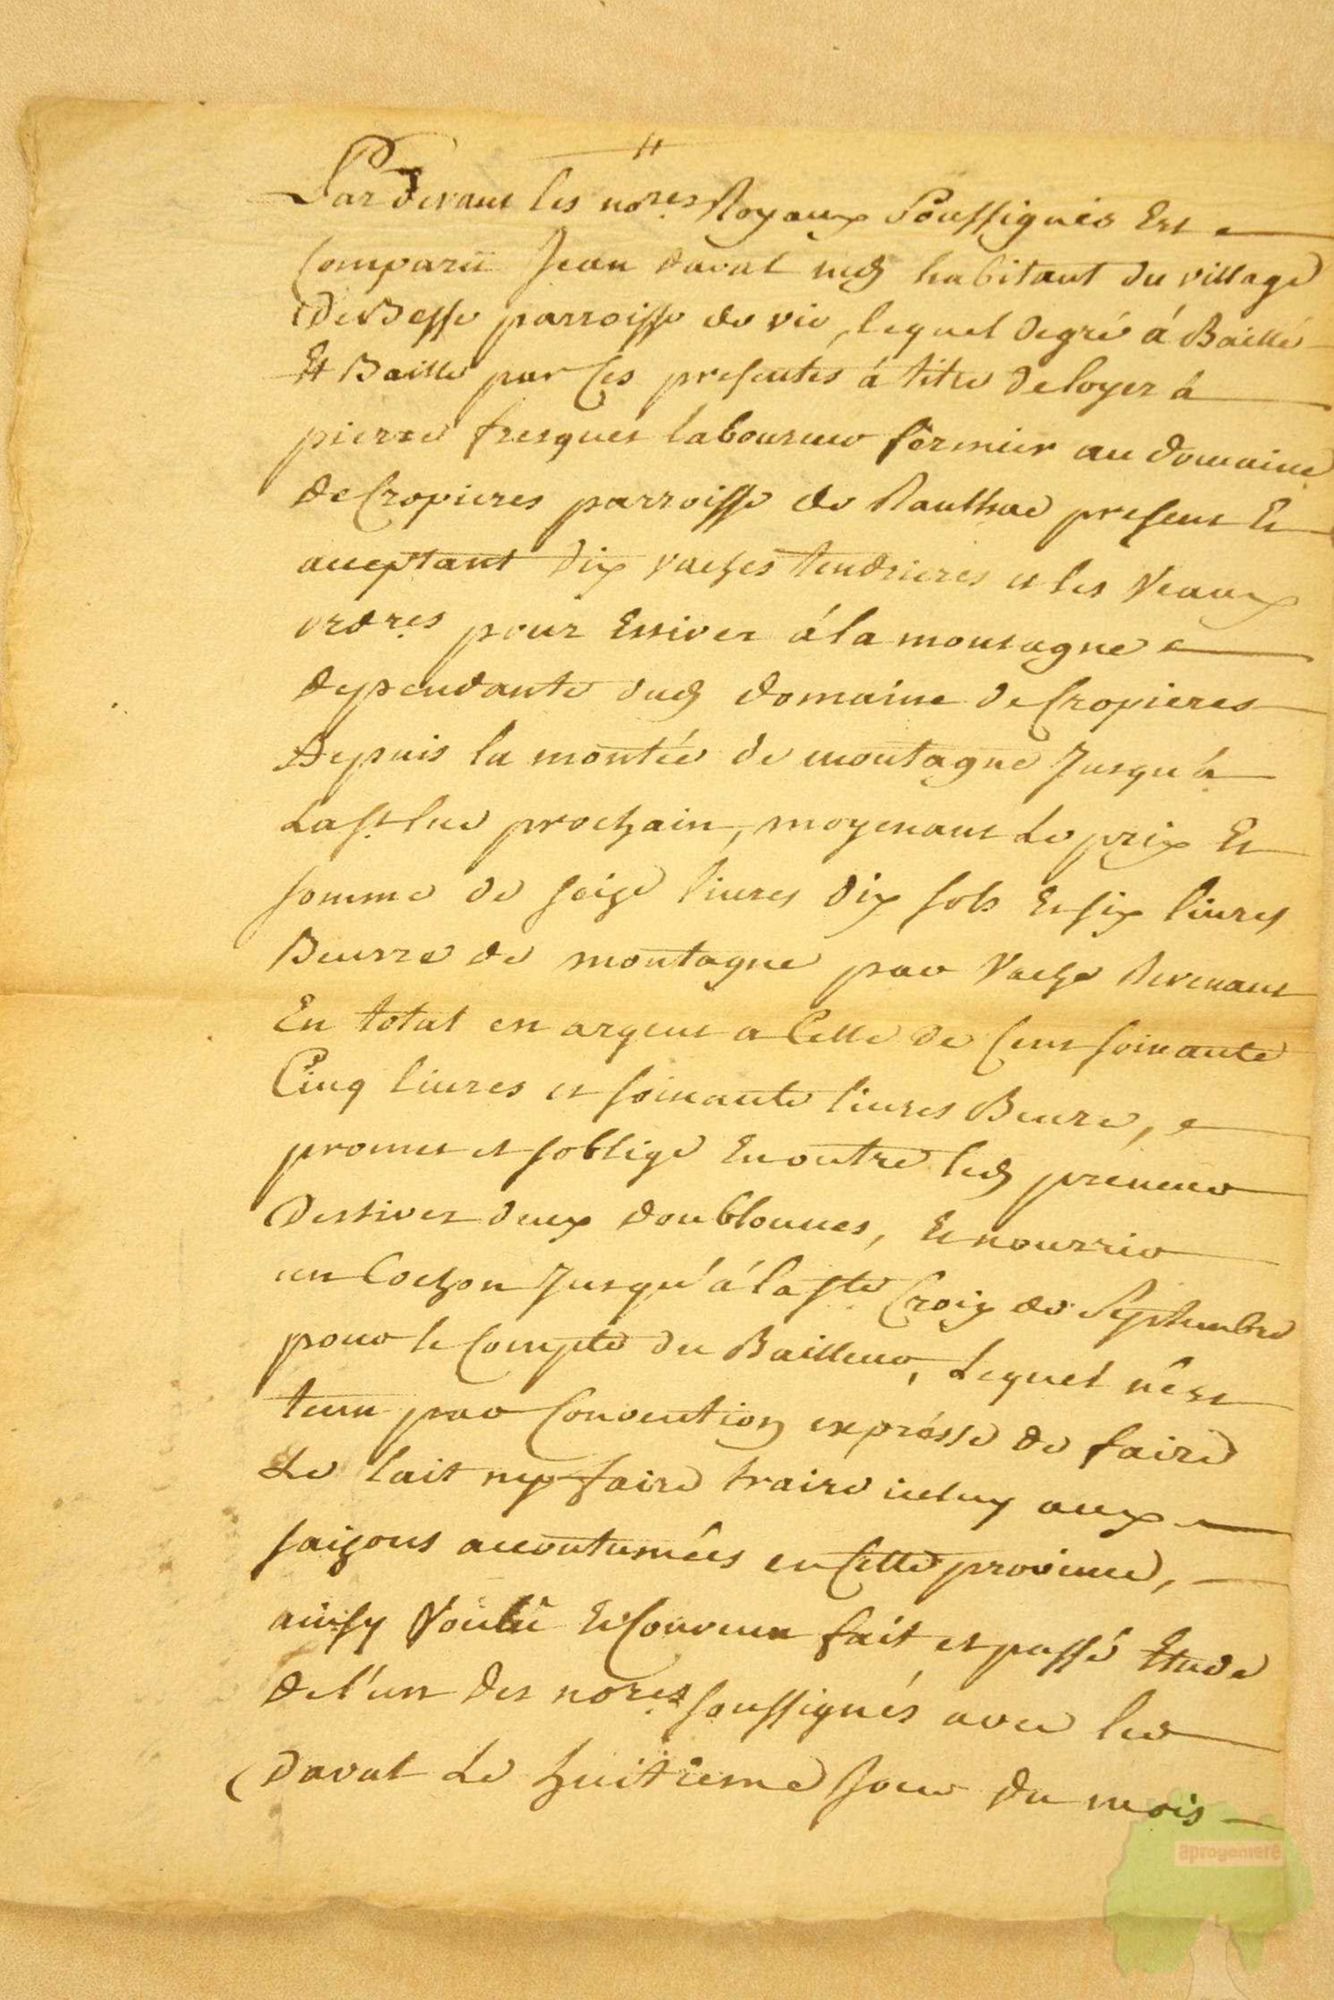 Par devant les no.res Royaux Soussignés Est
Comparu Jean daval md habitant du village
De Besse parroisse de vic, lequel de gré à Baillé
Et Baille par Ces presentes à titre de loyer à
pierre fresquet laboureur fermier au domaine
de Cropieres parroisse de Raulhac present Et
acceptant dix vaches tendrieres et les Veaux
ord.res pour Estiver à la montagne
dependante dud domaine de Cropieres
Depuis la montée de montagne Jusqu'à
La St luc prochain, moyenant Le prix Et
somme de seize livres dix sols Et six livres
Beurre de montagne par Vache Revenant
En total en argent a Celle de Cent soixante
Cinq livres et soixante livres Beure,
promet et soblige En outre led preneur
Destiver deux doublonnes, Et nourrir
un Cochon Jusqu'à la Ste Croix de Septembre
pour le Compte du Bailleur, Lequel n'est
tenu par Convention expresse de faire
Le lait ny faire traire icelluy aux
saizons accoutumées en Cette province,
ainsy Voulû Et Convenu fait et passé Etude
de l'un des no.res soussignés avec led
Daval Le huitieme Jour du mois
aprogemere